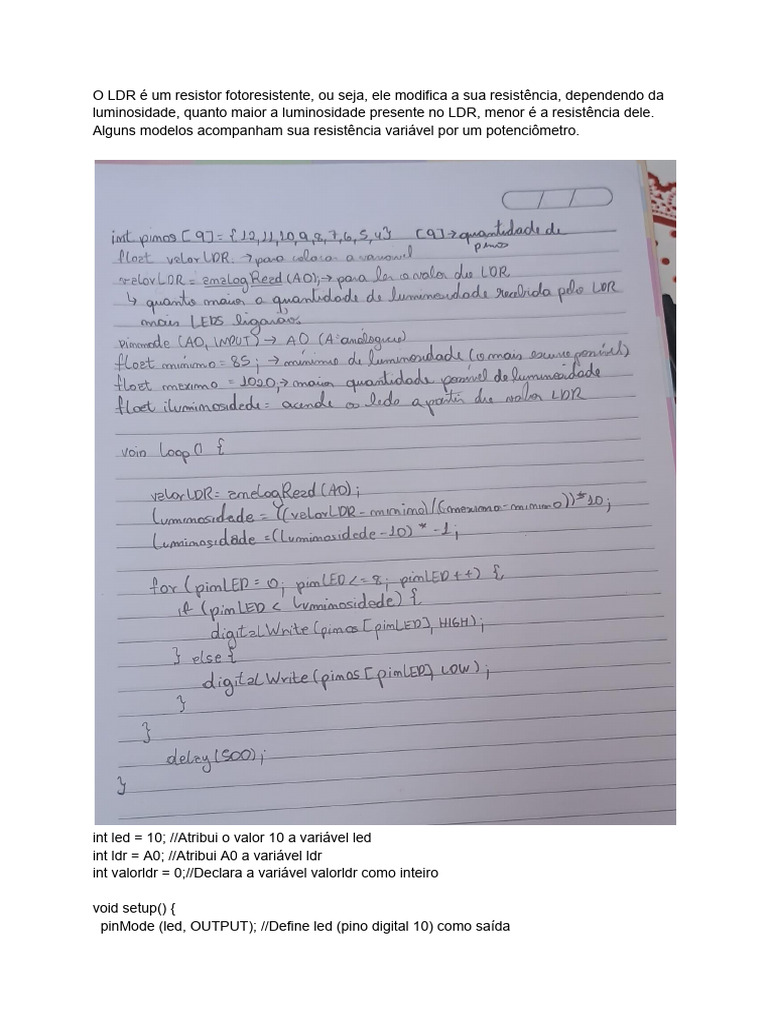 O LDR é um resistor fotoresistente, ou seja, ele modifica a sua resistência, dependendo da
luminosidade, quanto maior a luminosidade presente no LDR, menor é a resistência dele.
Alguns modelos acompanham sua resistência variável por um potenciômetro.
int pinos [9] = {12,11,10,9,8,7,6,5,4} [9] → quantidade de
pinos
float valorLDR → para colocar a variavel
valorLDR = analogRead (A0); → para ler o valor do LDR
↳ quanto maior a quantidade de luminosidade recebida pelo LDR
mais LEDS ligarão.
pinmode (A0, INPUT) → A0 (A: analógico)
float minimo = 85; → mínimo de luminosidade (o mais escuro possível)
float maximo = 1020, → maior quantidade possível de luminosidade
float iluminosidade = acende os leds a partir do valor LDR
voin loop() {
valorLDR = analogRead (A0);
luminosidade = ((valorLDR - minimo)/(maximo - minimo))*10;
luminosidade = (luminosidade - 10) * -1;
for (pinLED = 0; pinLED <= 8; pinLED ++) {
if (pinLED < luminosidade) {
digitalWrite (pinos [pinLED], HIGH);
} else {
digitalWrite (pinos [pinLED], LOW);
}
}
delay (500);
}
int led = 10; //Atribui o valor 10 a variável led
int ldr = A0; //Atribui A0 a variável ldr
int valorldr = 0;//Declara a variável valorldr como inteiro
void setup() {
pinMode (led, OUTPUT); //Define led (pino digital 10) como saída